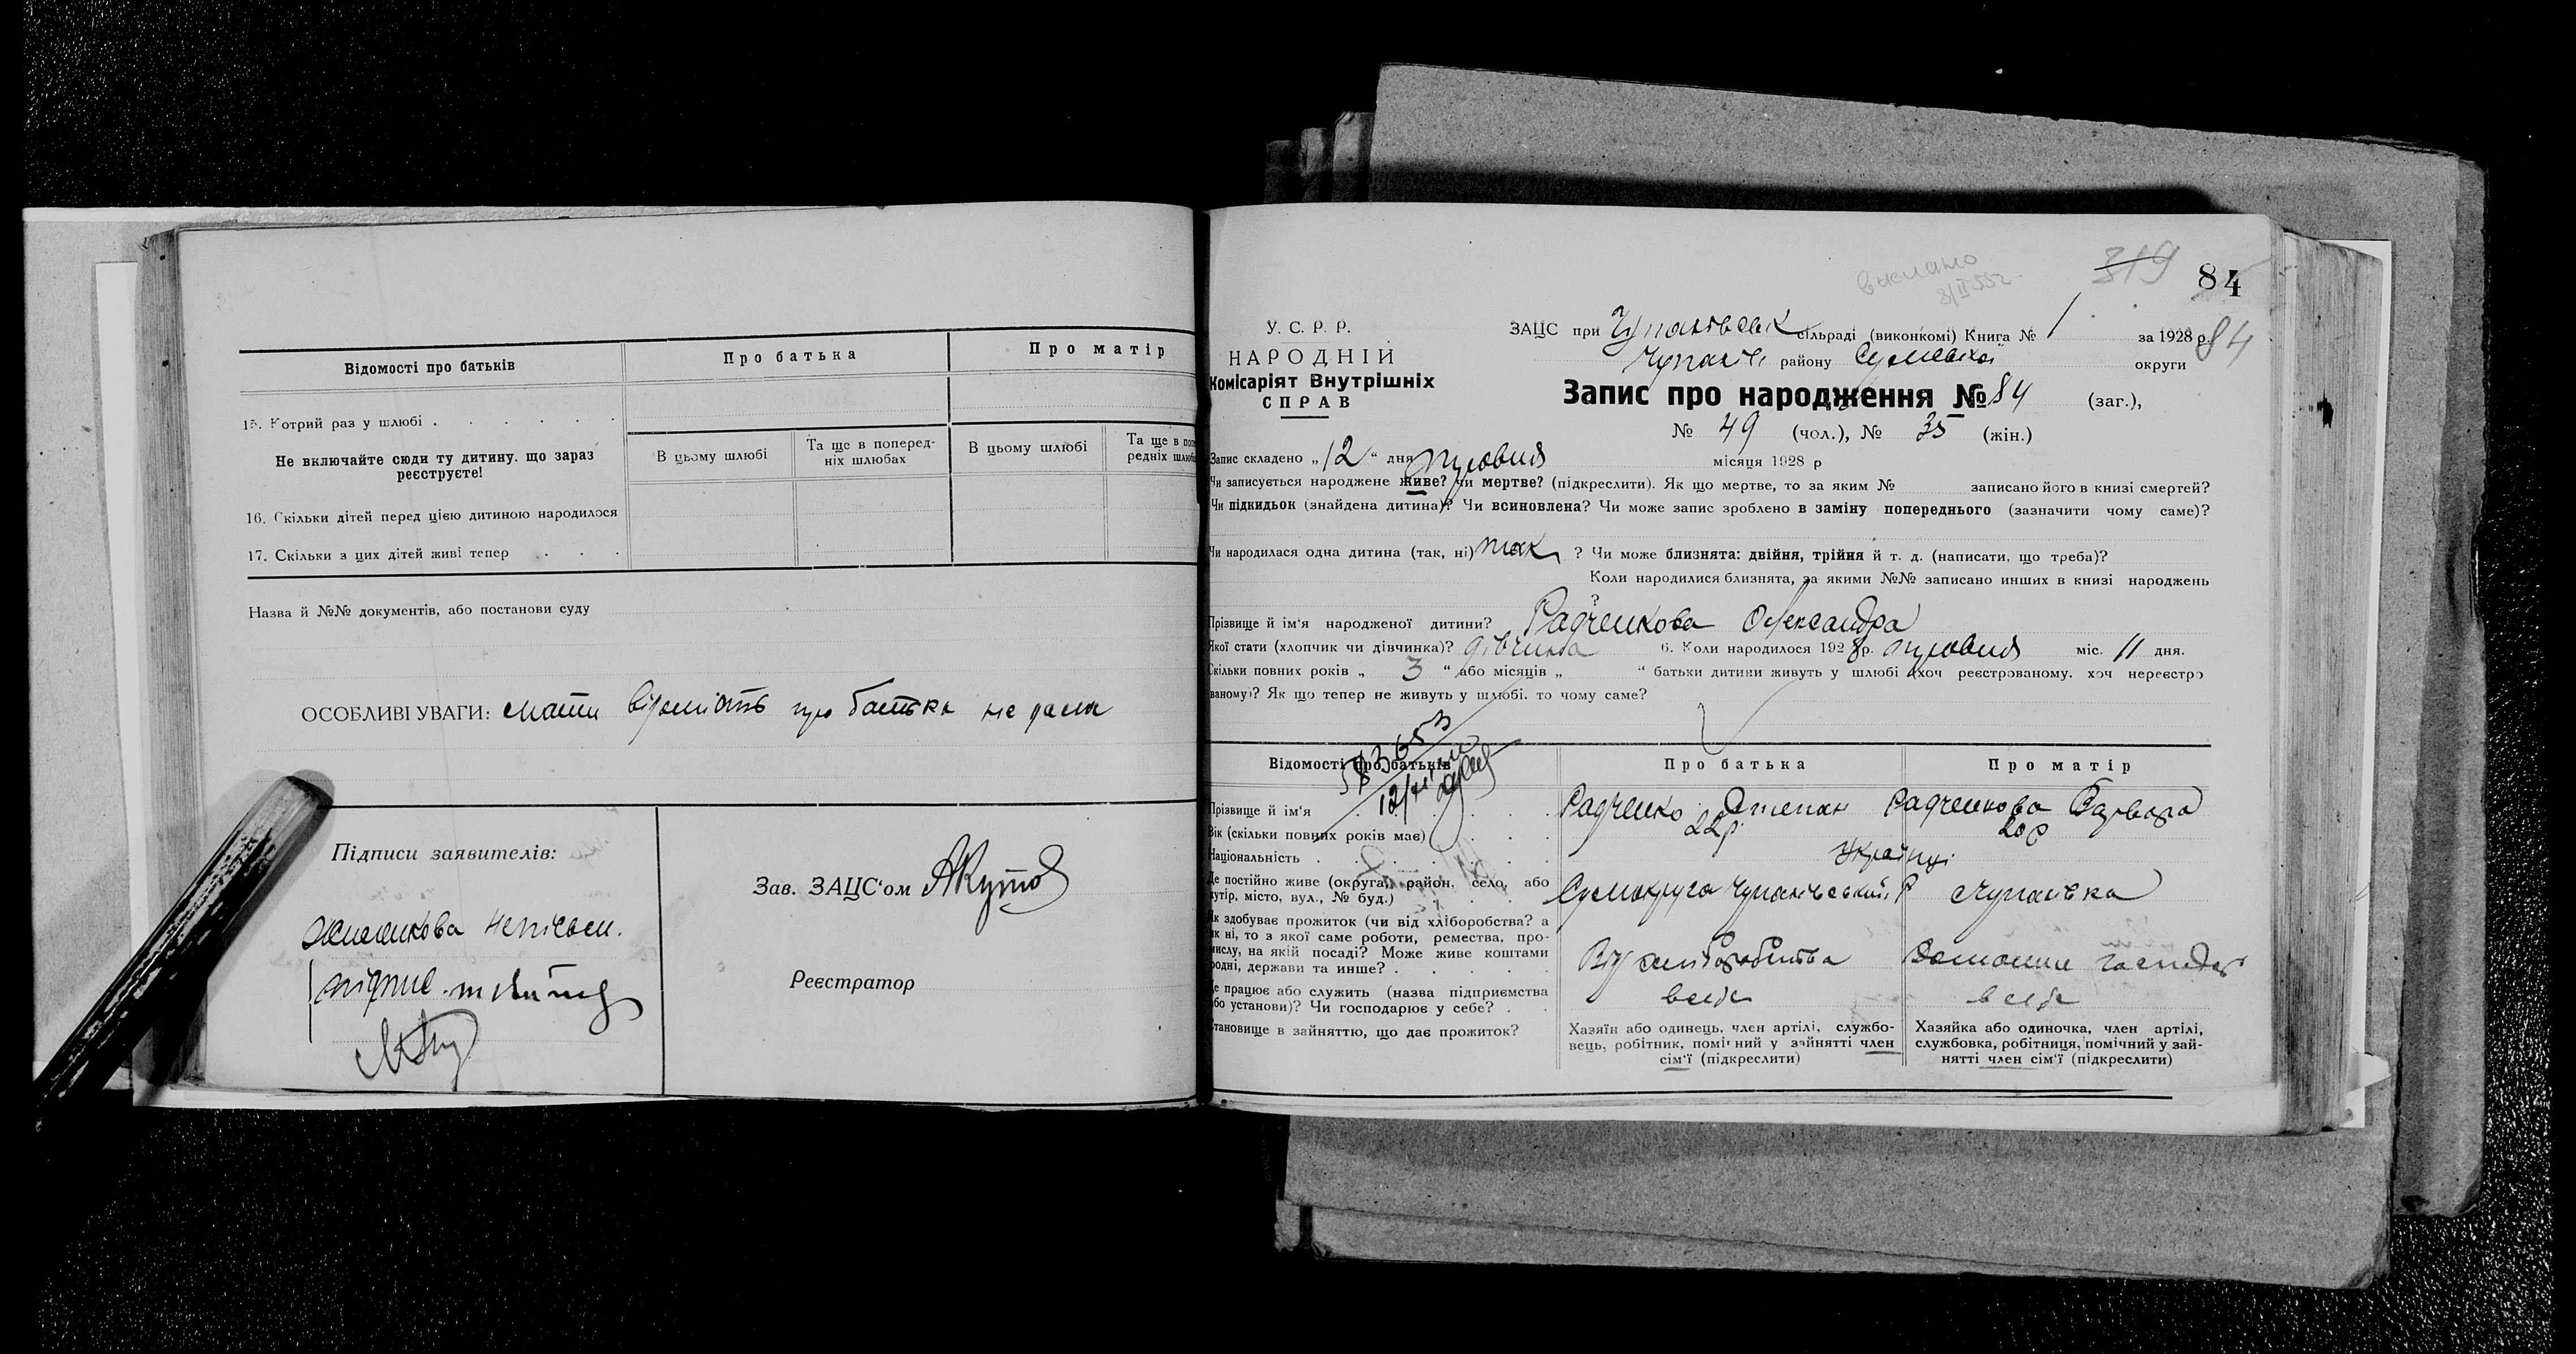 Відомості про батьків
Про батька
Про матір
15. Котрий раз у шлюбі . . . . . .
Не включайте сюди ту дитину, що зараз
реєструєте!
В цьому шлюбі
Та ще в поперед-
ніх шлюбах
В цьому шлюбі
Та ще в попе
редніх шлюб
16. Скільки дітей перед цією дитиною народилося
17. Скільки з цих дітей живі тепер . . .
Назва й №№ документів, або постанови суду
ОСОБЛИВІ УВАГИ: мати відомість про батька не дала
Підписи заявителів:
неписьм.
Зав. ЗАЦС'ом АКутов
Реєстратор
319
84
84
У. С. Р. Р.
НАРОДНІЙ
Комісаріят Внутрішніх
СПРАВ
ЗАЦС при сільраді (виконкомі) Книга № 1 за 1928 р.
району Сумської округи
Запис про народження № 84 (заг.),
№ 49 (чол.), № 35 (жін.)
Запис складено „12“ дня місяця 1928 р
Чи записується народжене живе? чи мертве? (підкреслити). Як що мертве, то за яким № записано його в книзі смертей?
Чи підкидьок (знайдена дитина)? Чи всиновлена? Чи може запис зроблено в заміну попереднього (зазначити чому саме)?
Чи народилася одна дитина (так, ні) так ? Чи може близнята: двійня, трійня й т. д. (написати, що треба)?
Коли народилися близнята, за якими №№ записано инших в книзі народжень
?
Прізвище й ім'я народженої дитини? Радченкова Олександра
Якої стати (хлопчик чи дівчинка)? дівчинка 6. Коли народилося 1928 р. міс. 11 дня.
Скільки повних років „ 3 “ або місяців „ “ батьки дитини живуть у шлюбі (хоч реєстрованому, хоч нереєстро
ваному)? Як що тепер не живуть у шлюбі, то чому саме?
Відомості про батьків
Про батька
Про матір
Прізвище й ім'я . . . . . . Радченко Степан Радченкова Варвара
Вік (скільки повних років має) . . . 22р. 20р
Національність . . . . . . Українці
Де постійно живе (округа, район, село, або
хутір, місто, вул., № буд.) . . . Сумокруга Чупахівський Р Чупахівка
Як здобуває прожиток (чи від хліборобства? а
як ні, то з якої саме роботи, ремества, про-
мислу, на якій посаді? Може живе коштами
родні, держави та инше? . . . . . Від хліборобства Домашнє господар
Де працює або служить (назва підприємства
або установи)? Чи господарює у себе? . . в себе в себе
Становище в зайняттю, що дає прожиток?
Хазяїн або одинець, член артілі, службо-
вець, робітник, помічний у зайнятті член
сім'ї (підкреслити)
Хазяйка або одиночка, член артілі,
службовка, робітниця, помічний у зай-
нятті член сім'ї (підкреслити)